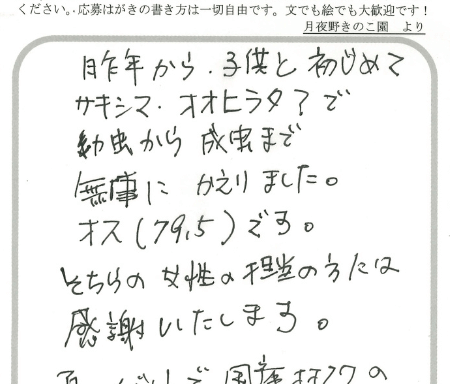 ください。.応募はがきの書き方は一切自由です。文でも絵でも大歓迎です！
月夜野きのこ園　より
昨年から．子供と初じめて
サキシマ．オオヒラタ？で
幼虫から成虫まで
無庫に かえりました。
オス(79,5)です。
そちらの女性の担当の方には
感謝いたします。
国産オオクワの